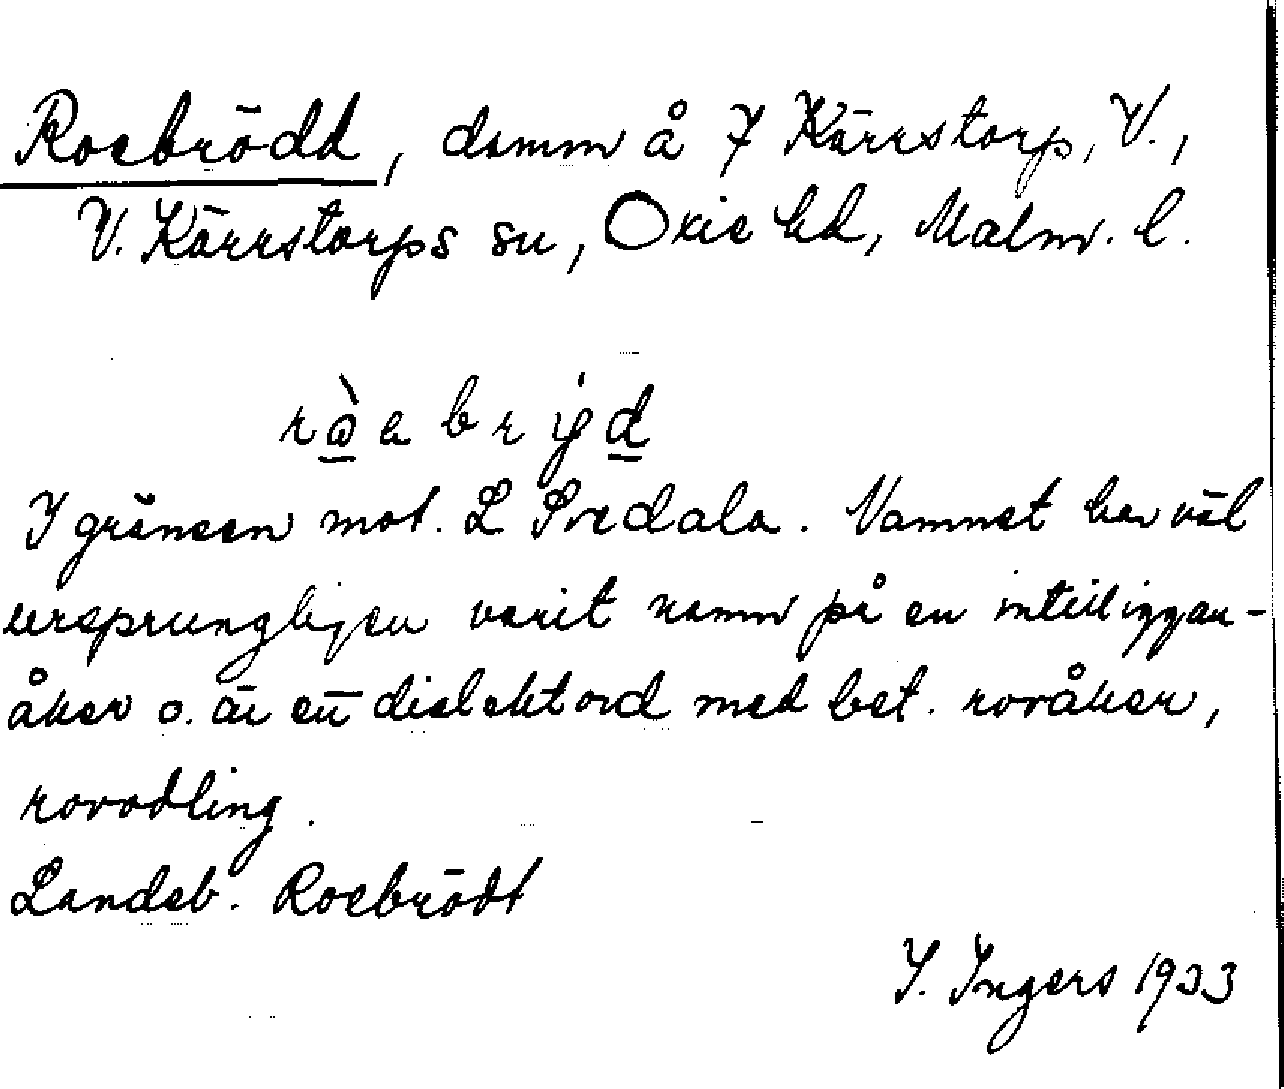 Roebrödd, damm å 7 Kärrstorp, V.,
V. Kärrstorps sn, Oxie hd, Malm. l.
ròebrýd
I gränsen mot. L Svedala. Namnet har väl
ursprungligen varit namn på en intilliggan-
åker o. är en dialektord med bet. rovåker,
rovodling.
Landsb. Roebrödt
I. Ingers 1933